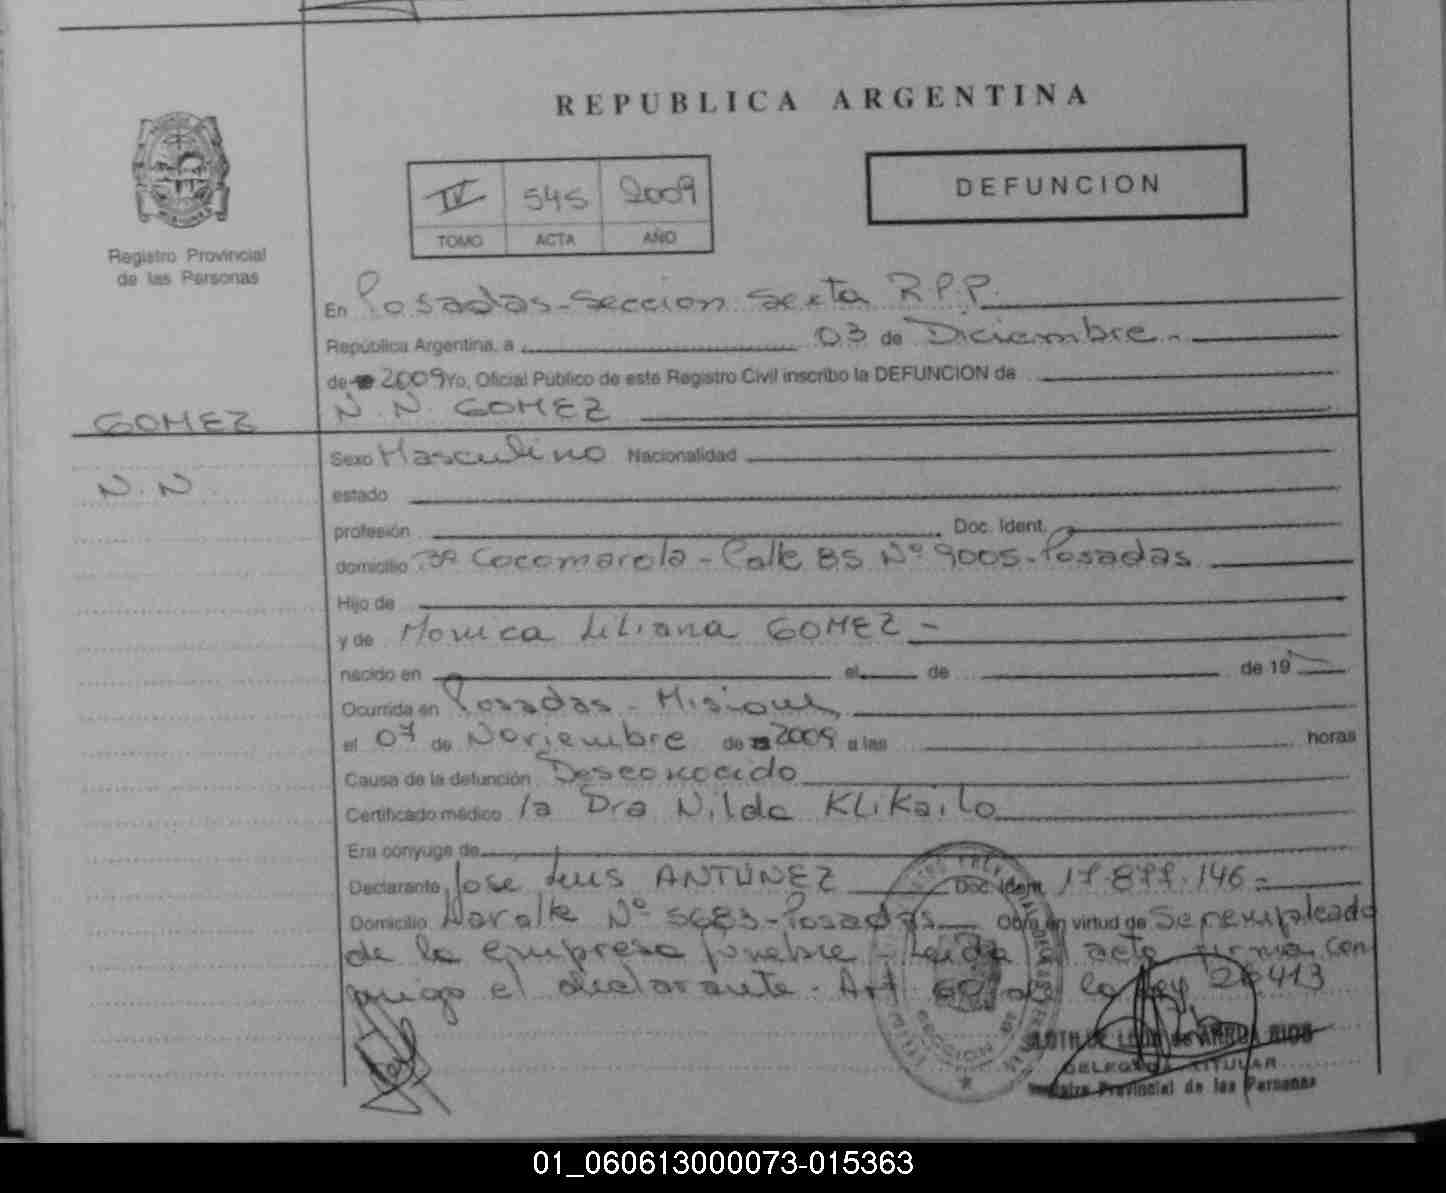 REPUBLICA ARGENTINA
Registro Provincial
de las Personas
IV 545 2009
TOMO ACTA AÑO
DEFUNCION
En Posadas-Seccion Sexta R.P.P.
República Argentina, a 03 de Diciembre.-
de 2009 Yo, Oficial Público de este Registro Civil inscribo la DEFUNCION de
GOMEZ
N. N. GOMEZ
N. N.
Sexo Masculino Nacionalidad
estado
profesión Doc. Ident.
domicilio Cocomarola - Calle 85 Nº 9005-Posadas
Hijo de
y de Monica Liliana GOMEZ -
nacido en el de de 19
Ocurrida en Posadas - Misiones
el 07 de Noviembre de 2009 a las horas
Causa de la defunción Desconocido
Certificado médico la Dra Nilda KLiKailo
Era conyuge de
Declarante Jose Luis ANTUNEZ Doc. Ident. 17.877.146
Domicilio Nº 5683-Posadas Obra en virtud de Ser empleado
de la empresa funebre - Leida el acta firma con
migo el declarante. Art de la Ley 26413
SECCION
DELEGADA TITULAR
Registro Provincial de las Personas
01_060613000073-015363